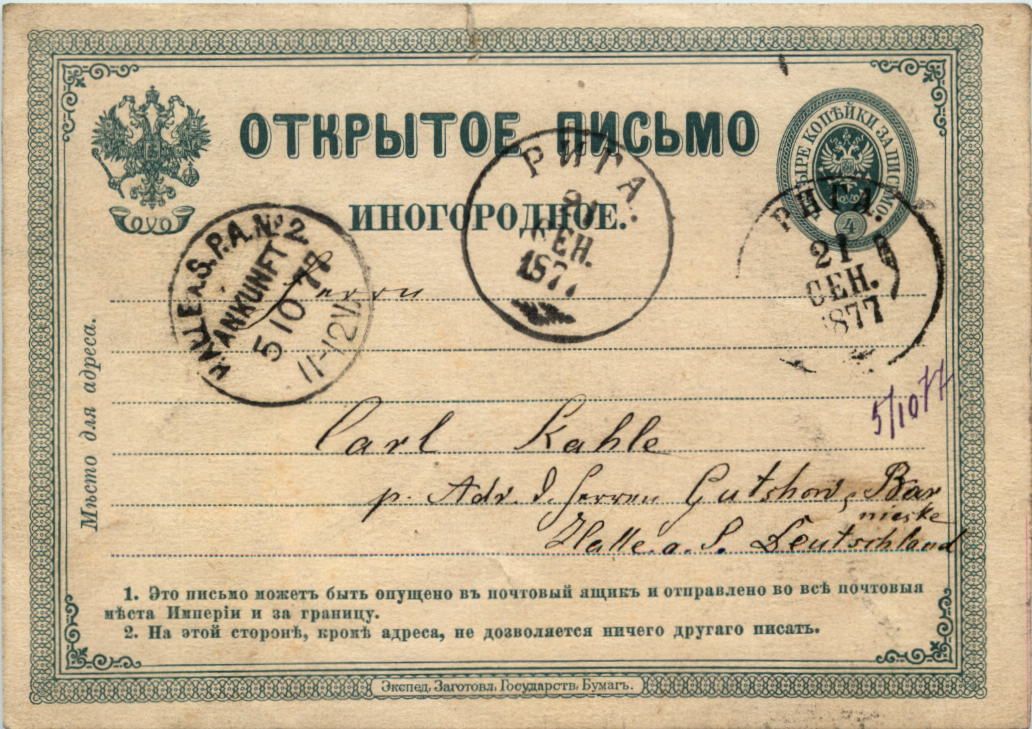 ОТКРЫТОЕ ПИСЬМО
ИНОГОРОДНОЕ.
ЫРЕ КОПѢЙКИ ЗА ПИСЬМО.
4
РИГА.
21
СЕН.
1877
РИГА.
21
СЕН.
1877
HALLE A.S. P.A. No 2.
ANKUNFT
5 10 77
11-12 V.
Herrn
5/10 77
Carl Kahle
p. Adr. d. Herren Gutshow & Bar
nieske
Halle a. S. Deutschland
Мѣсто для адреса.
1. Это письмо можетъ быть опущено въ почтовый ящикъ и отправлено во всѣ почтовыя
мѣста Имперіи и за границу.
2. На этой сторонѣ, кромѣ адреса, не дозволяется ничего другаго писать.
Экспед. Заготовл. Государств. Бумагъ.